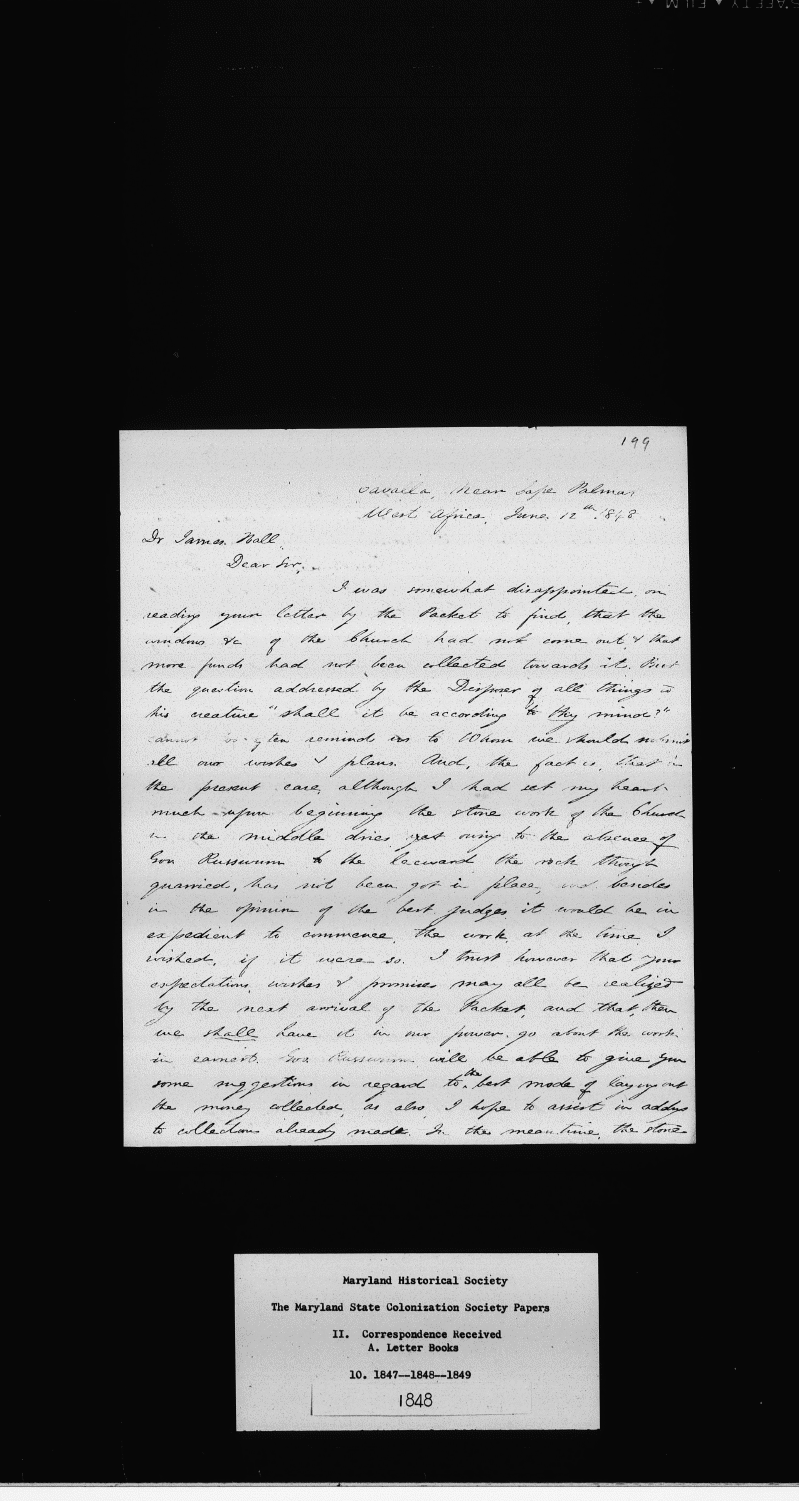 199
Cavalla, near Cape Palmas
West Africa, June 12th 1848
Dr James Hall,
Dear Sir,
I was somewhat disappointed, on
reading your letter by the Packet to find, that the
windows &c of the Church had not come out, & that
more funds had not been collected towards it. But
the question addressed by the Disposer of all things to
his creature "shall it be according to thy mind?"
cannot too often remind us to Whom we should submit
all our wishes & plans. And, the fact is, that in
the present case, although I had set my heart
much upon beginning the stone work of the Church
in the middle dries, yet owing to the absence of
Gov Russwurm to the leeward the rock though
quarried, has not been got in place, and besides
in the opinion of the best judges it would be in
expedient to commence, the work, at the time, I
wished, if it were so. I trust however that your
expectations, wishes & promises may all be realized
by the next arrival of the Packet, and that, then
we shall have it in our power go about the work
in earnest. Gov Russwurm will be able to give you
some suggestions in regard to the best mode of laying out
the money collected, as also, I hope to assist in adding
to collections already made. In the mean time, the stone
Maryland Historical Society
The Maryland State Colonization Society Papers
II. Correspondence Received
A. Letter Books
10. 1847--1848--1849
1848